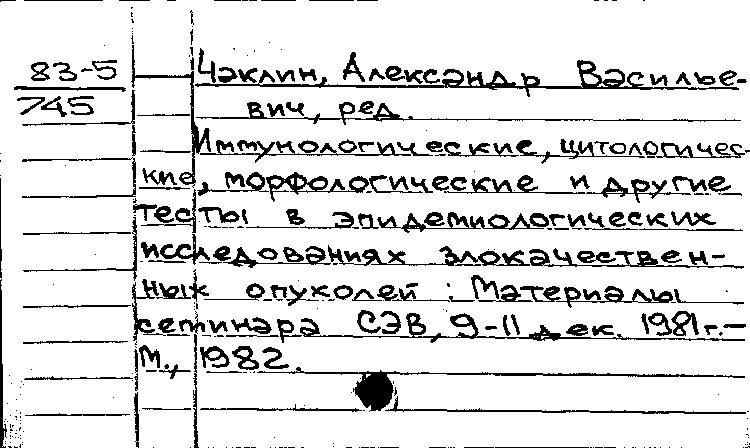 83-5 Чаклин, Александр Василье-
745 вич, ред.
Иммунологические, цитологичес-
кие, морфологические и другие
тесты в эпидемиологических
исследованиях злокачествен-
ных опухолей : Материалы
семинара СЭВ, 9-11 дек. 1981г.-
М., 1982.